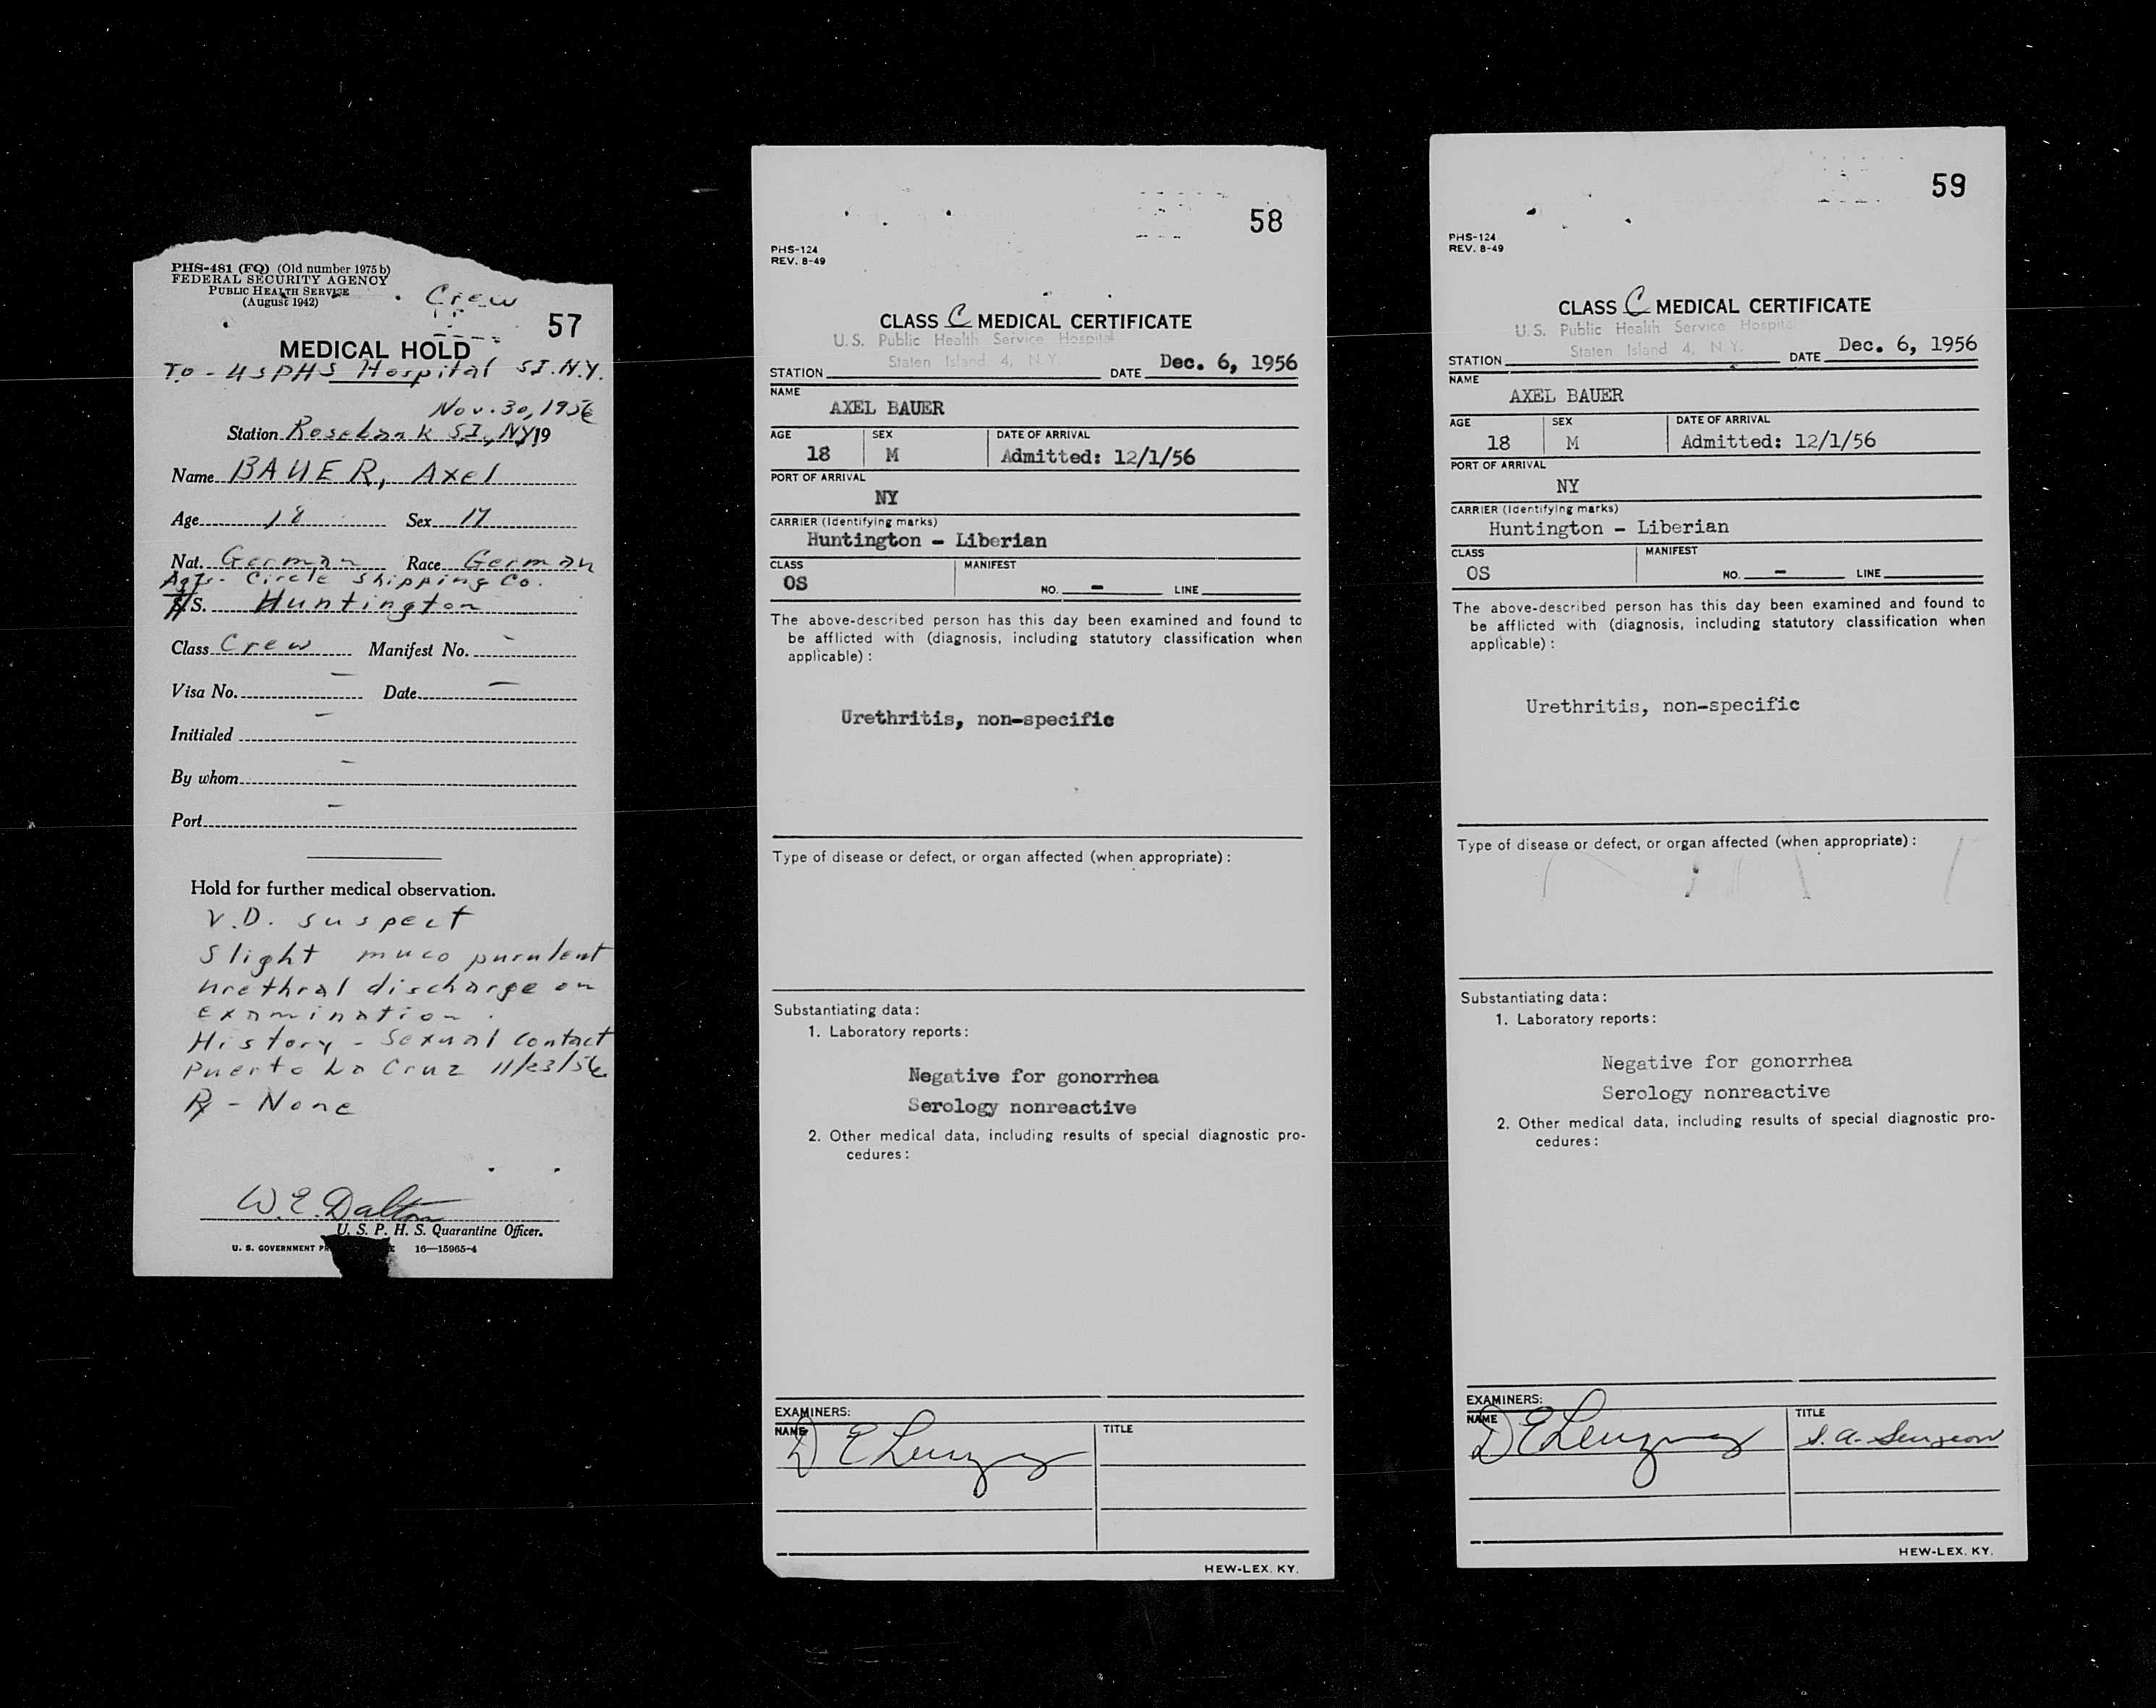 PHS-481 (FQ) (Old number 1975 b)
FEDERAL SECURITY AGENCY
PUBLIC HEALTH SERVICE
(August 1942)
Crew
57
MEDICAL HOLD
To - USPHS Hospital S.I. N.Y.
Nov. 30, 1956
Station Rosebank SI, NY 19
Name BAUER, Axel
Age 18 Sex M
Nat. German Race German
Agts - Circle Shipping Co.
S. Huntington
Class Crew Manifest No. -
Visa No. - Date -
Initialed -
By whom -
Port -
Hold for further medical observation.
V.D. suspect
Slight muco purulent
urethral discharge on
examination.
History - Sexual contact
Puerto La Cruz 11/23/56
Rx - None
W. E. Dalton
U. S. P. H. S. Quarantine Officer.
U. S. GOVERNMENT 16—15965-4
58
PHS-124
REV. 8-49
CLASS C MEDICAL CERTIFICATE
U.S. Public Health Service Hospital
STATION Staten Island 4, N.Y. DATE Dec. 6, 1956
NAME
AXEL BAUER
AGE SEX DATE OF ARRIVAL
18 M Admitted: 12/1/56
PORT OF ARRIVAL
NY
CARRIER (Identifying marks)
Huntington - Liberian
CLASS MANIFEST
OS NO. - LINE
The above-described person has this day been examined and found to
be afflicted with (diagnosis, including statutory classification when
applicable) :
Urethritis, non-specific
Type of disease or defect, or organ affected (when appropriate) :
Substantiating data :
1. Laboratory reports :
Negative for gonorrhea
Serology nonreactive
2. Other medical data, including results of special diagnostic pro-
cedures :
EXAMINERS:
NAME TITLE
D E
HEW-LEX. KY.
59
PHS-124
REV. 8-49
CLASS C MEDICAL CERTIFICATE
U.S. Public Health Service Hospital
STATION Staten Island 4, N.Y. DATE Dec. 6, 1956
NAME
AXEL BAUER
AGE SEX DATE OF ARRIVAL
18 M Admitted: 12/1/56
PORT OF ARRIVAL
NY
CARRIER (Identifying marks)
Huntington - Liberian
CLASS MANIFEST
OS NO. - LINE
The above-described person has this day been examined and found to
be afflicted with (diagnosis, including statutory classification when
applicable) :
Urethritis, non-specific
Type of disease or defect, or organ affected (when appropriate) :
Substantiating data :
1. Laboratory reports :
Negative for gonorrhea
Serology nonreactive
2. Other medical data, including results of special diagnostic pro-
cedures :
EXAMINERS:
NAME TITLE
D E S. A. Surgeon
HEW-LEX. KY.